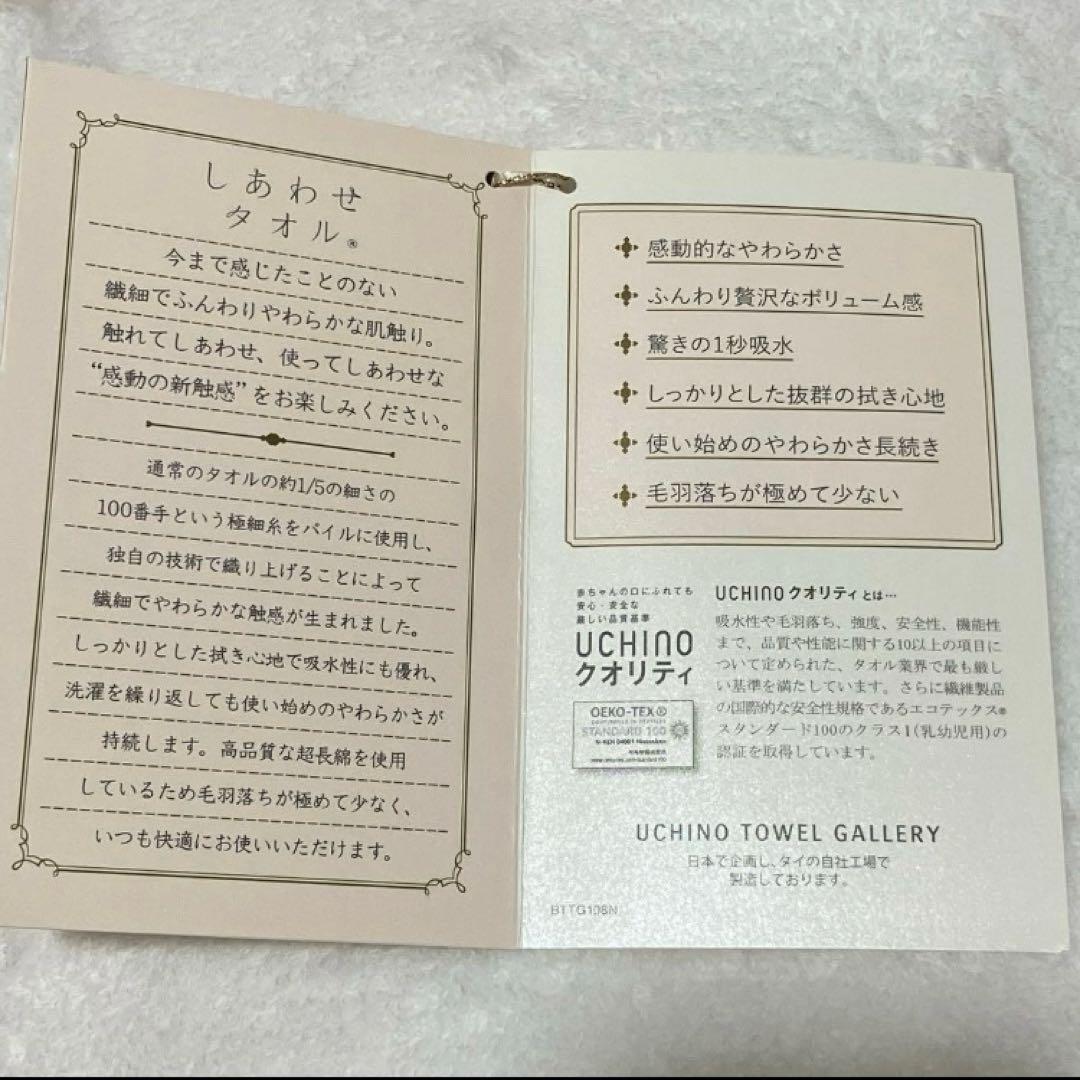 しあわせ
タオル®
今まで感じたことのない
繊細でふんわりやわらかな肌触り。
触れてしあわせ、使ってしあわせな
“感動の新触感”をお楽しみください。
通常のタオルの約1/5の細さの
100番手という極細糸をパイルに使用し、
独自の技術で織り上げることによって
繊細でやわらかな触感が生まれました。
しっかりとした拭き心地で吸水性にも優れ、
洗濯を繰り返しても使い始めのやわらかさが
持続します。高品質な超長綿を使用
しているため毛羽落ちが極めて少なく、
いつも快適にお使いいただけます。
感動的なやわらかさ
ふんわり贅沢なボリューム感
驚きの1秒吸水
しっかりとした抜群の拭き心地
使い始めのやわらかさ長続き
毛羽落ちが極めて少ない
赤ちゃんの口にふれても
安心・安全な
厳しい品質基準
UCHINO
クオリティ
OEKO-TEX®
STANDARD 100
UCHINOクオリティとは…
吸水性や毛羽落ち、強度、安全性、機能性
まで、品質や性能に関する10以上の項目に
ついて定められた、タオル業界で最も厳し
い基準を満たしています。さらに繊維製品
の国際的な安全性規格であるエコテックス®
スタンダード100のクラス1(乳幼児用)の
認証を取得しています。
UCHINO TOWEL GALLERY
日本で企画し、タイの自社工場で
製造しております。
BTTG108N